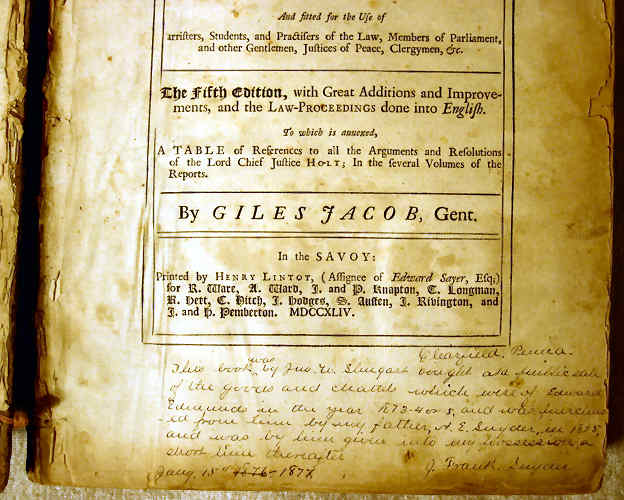 And fitted for the Use of
arristers, Students, and Practisers of the Law, Members of Parliament,
and other Gentlemen, Justices of Peace, Clergymen, &c.
The Fifth Edition, with Great Additions and Improve-
ments, and the LAW-PROCEEDINGS done into English.
To which is annexed,
A TABLE of References to all the Arguments and Resolutions
of the Lord Chief Justice HOLT; In the several Volumes of the
Reports.
By GILES JACOB, Gent.
In the SAVOY:
Printed by HENRY LINTOT, (Assignee of Edward Sayer, Esq;)
for R. Ware, A. Ward, J. and P. Knapton, T. Longman,
R. Hett, C. Hitch, J. Hodges, S. Austen, J. Rivington, and
J. and H. Pemberton. MDCCXLIV.
Clearfield, Penna.
This book was by Jno. W. Shugart bought at a public sale
of the goods and chattels which were of Edward
Edmunds in the year 1873-4 or 5, and was purchas
-ed from him by my father, E. Snyder, in 1875,
and was by him given into my possession a
short time thereafter
Jany. 15th 1876-1877 J. Frank Snyder